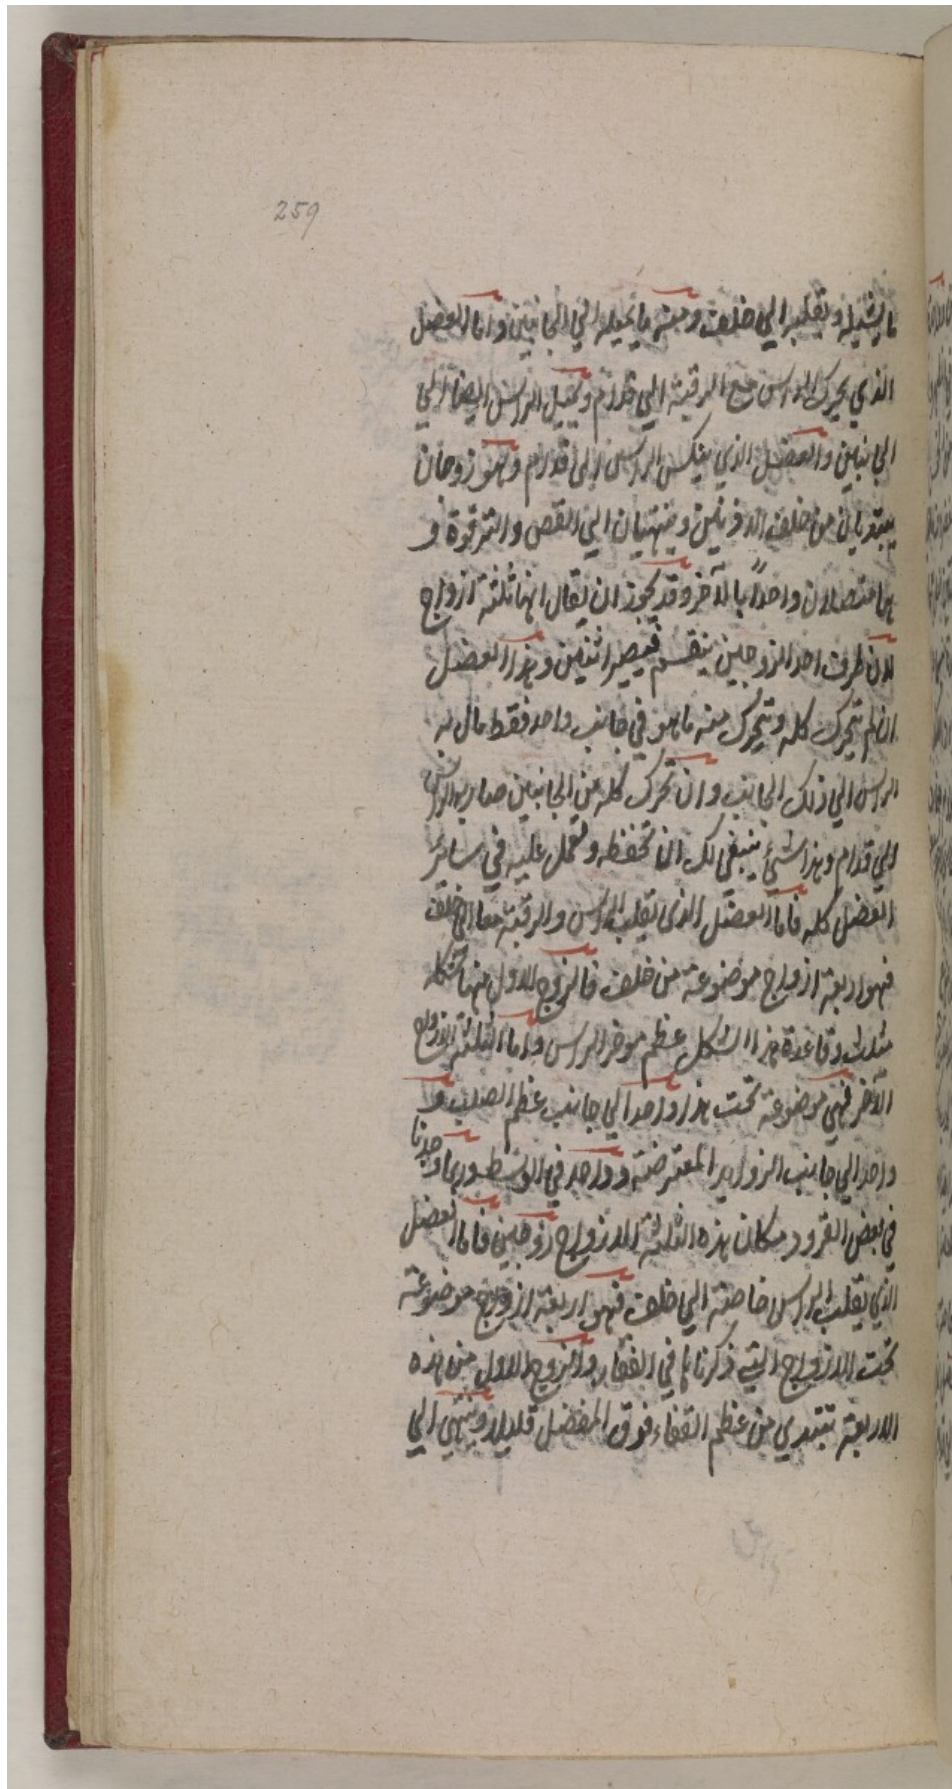 259
ما يشيله ويقلبه الي خلف ومنه ما يميله الي الجانبين واما العضل
الذي يحرك الراس مع الرقبة الي قدام ويميل الراس ايضا الي
الجانبين والعضل الذي ينكس الراس الي قدام وهو زوجان
يبتديان من خلف الاذنين وينتهيان الي القص والترقوة و
هما متصلان واحداً بالآخر وقد يجوز ان يقال انها ثلثة ازواج
لان طرف احد الزوجين ينقسم فيصير اثنين وهذا العضل
ان لم يتحرك كله وتحرك منه ما هو في جانب واحد فقط مال به
الراس الي ذلك الجانب وان تحرك كله من الجانبين صار به الراس
الي قدام وهذا شيء ينبغي لك ان تحفظه وتعمل عليه في سائر
العضل كله فاما العضل الذي يقلب الراس والرقبة معا الي خلف
فهو اربعة ازواج موضوعة من خلف فالزوج الاول منها شكله
مثلث وقاعدة هذا الشكل عظم موخر الراس واما الثلثة الازواج
الآخر فهي موضوعة تحت هذا واحد الي جانب عظم الصلب و
واحد الي جانب الزوايد المعترضة وواحد في الوسط وربما وجدنا
في بعض القرود مكان هذه الثلثة الازواج زوجين فاما العضل
الذي يقلب الراس خاصة الي خلف فهو اربعة ازواج موضوعة
تحت الازواج التي ذكرناها في الفقار والزوج الاول من هذه
الاربعة يبتدي من عظم القفاء فوق المفصل قليلا وينتهي الي